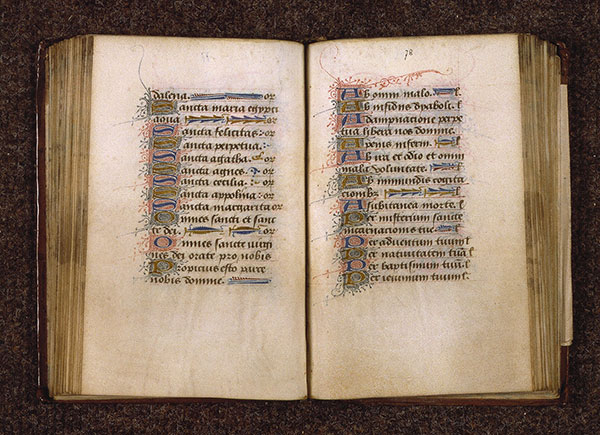 dalena. or
Sancta maria egypti
aqua or
Sancta felicitas: or
Sancta perpetua.
Sancta agatha. or
Sancta agnes. or
Sancta cecilia. or
Sancta appolina: or
Sancta margarita or
Omnes sancti et sanc
te dei. or
Omnes sancte virgi
nes dei orate pro nobis
Propicius esto parce
nobis domine.
78
Ab omni malo. l
Ab insidiis dyaboli. l
A dampnacione perpe
tua libera nos domine.
A penis inferni. l
Ab ira et odio et omni
mala voluntate. l
Ab immundis cogita
l
A subitanea morte. l
Per misterium sancte
incarnacionis tue l
Per adventum tuum l
Per nativitatem tuā l
Per baptismum tuū. l
Per ieiunium tuum l.